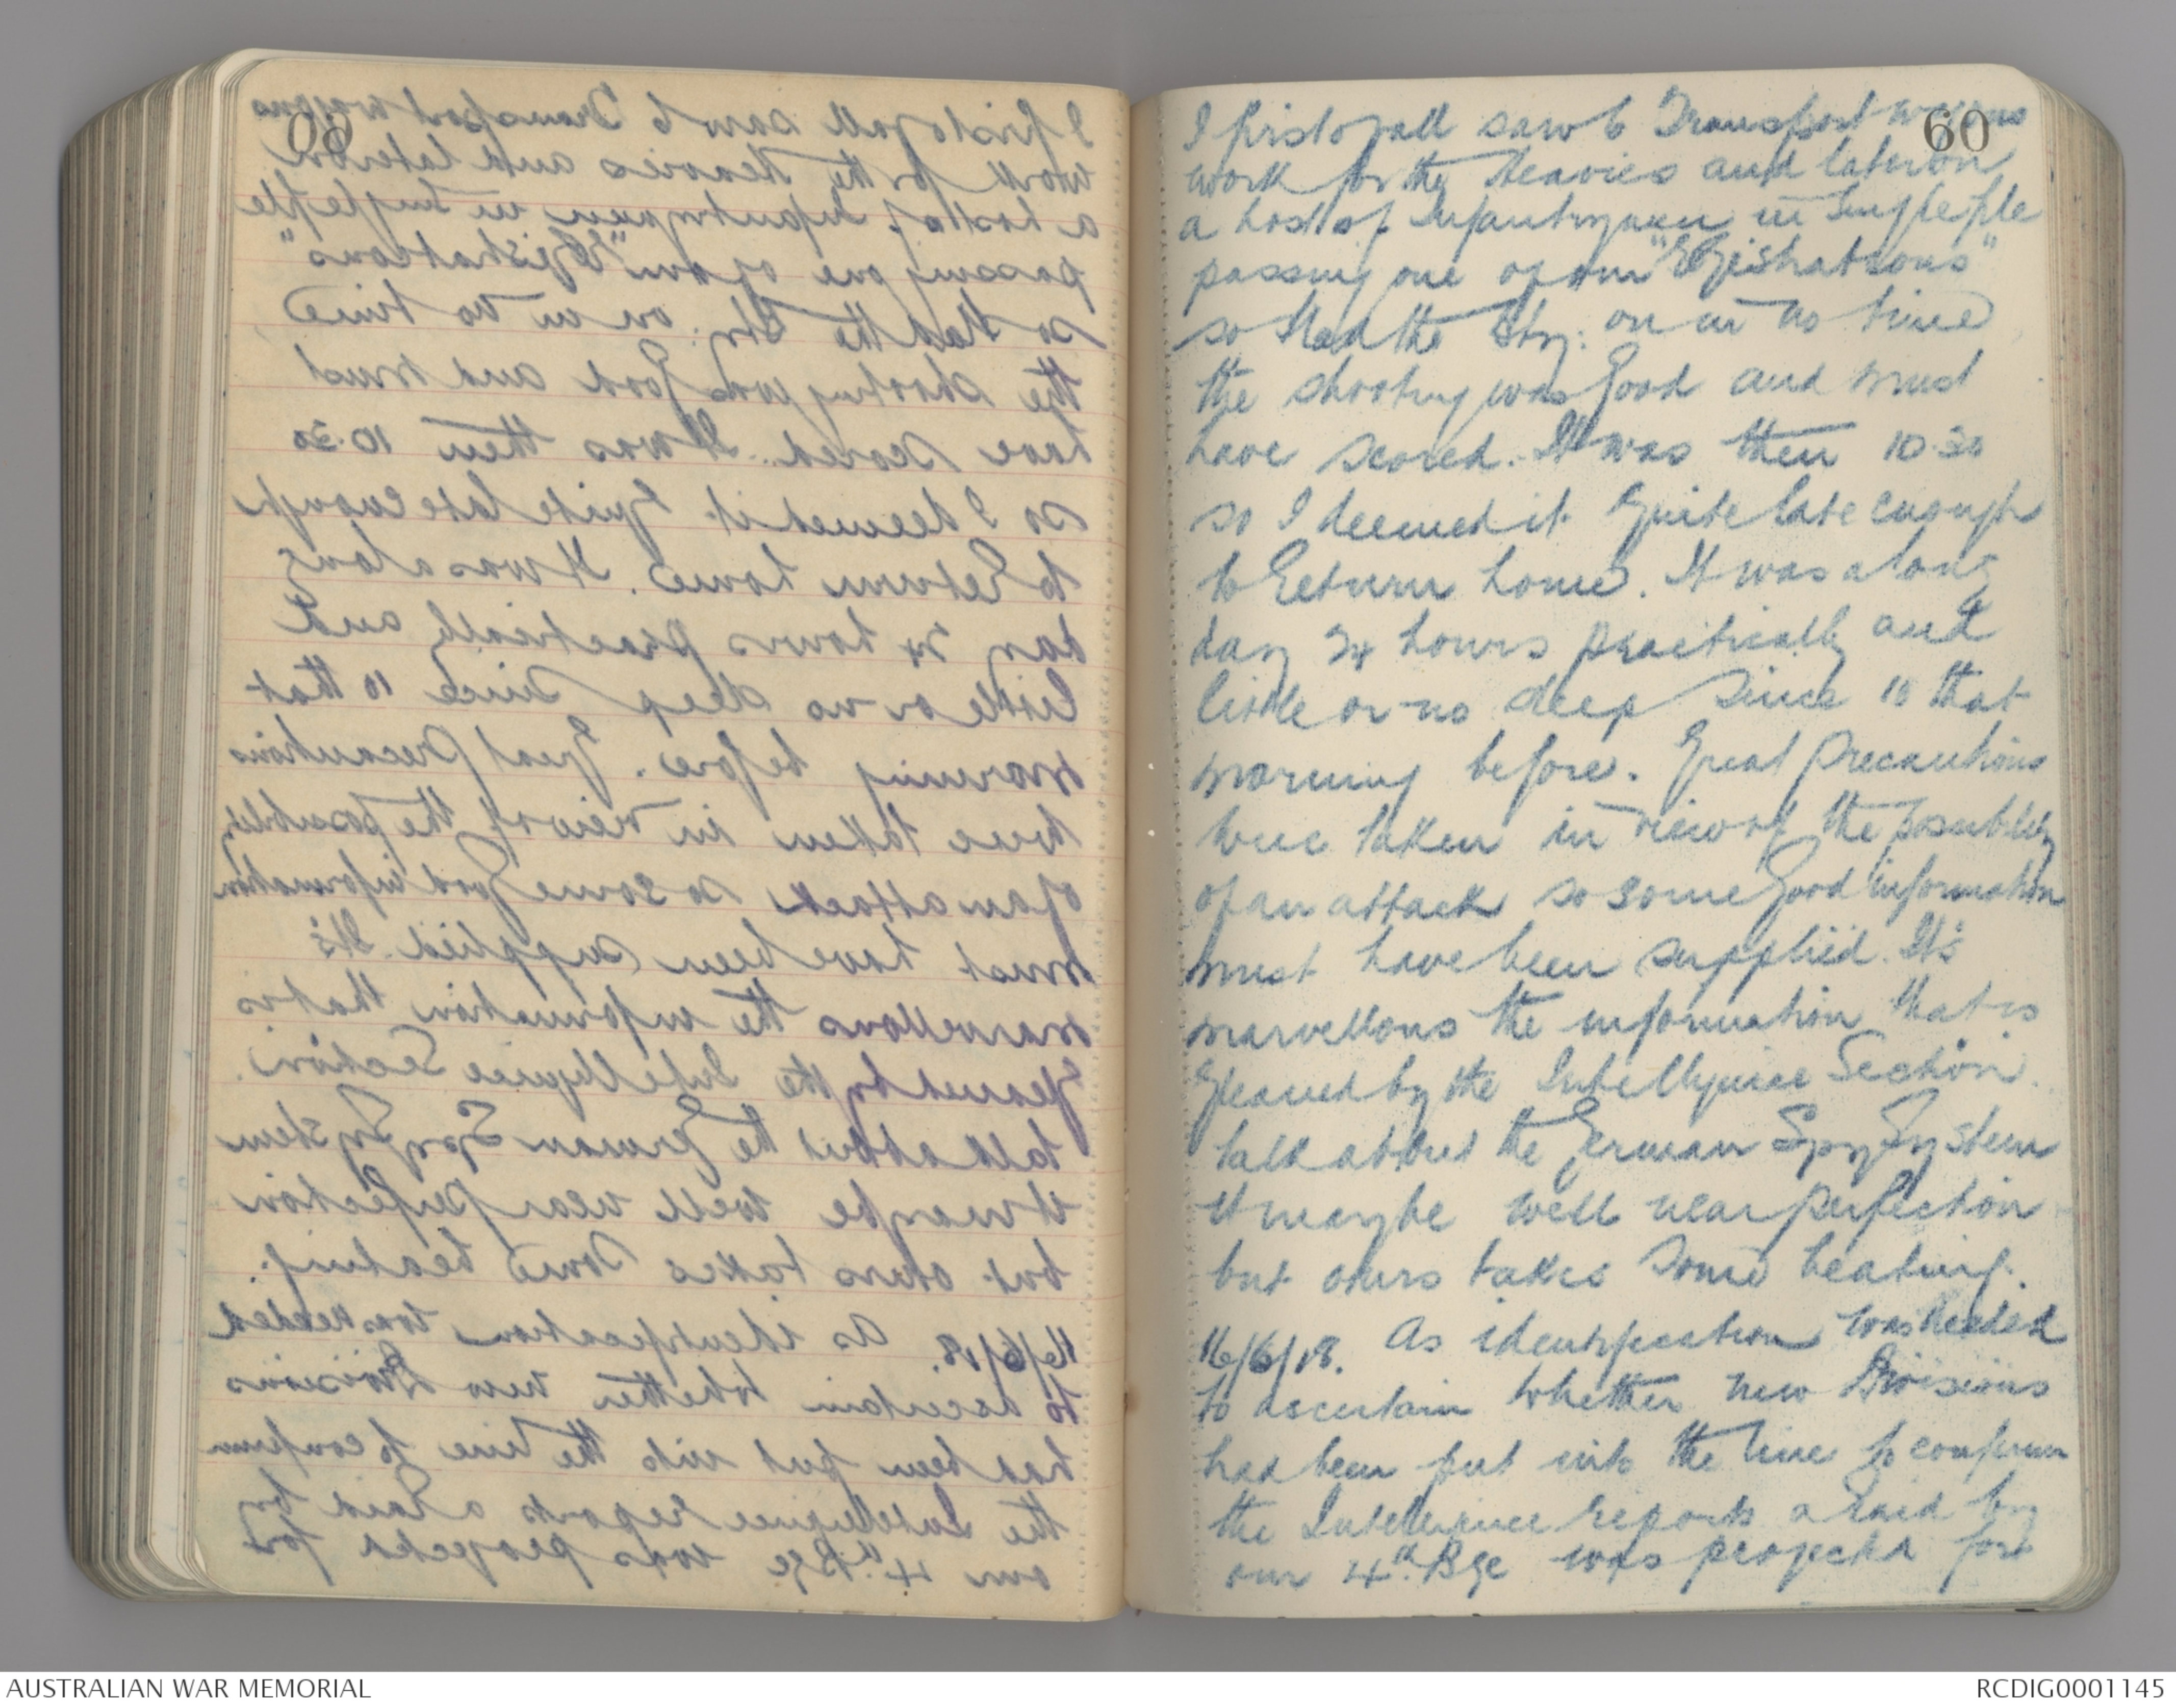 60
I first of all saw 6 Transport wagons
work for the Heavies and later on
a host of Infantrymen in Single file
passing one of our "Registrations"
so had the Bty: on in no time
the shooting was Good and must
have scored. It was then 10.30
so I deemed it Quite late enough
to Return home. It was a long
day 24 hours practically and
little or no sleep since 10 that
morning before. Great Precautions
were taken in view of the possibility
of an attack so some Good information
must have been supplied. It's
marvellous the information that is
Gleaned by the Intelligence Section.
talk about the German Spy System
it maybe well near perfection
but ours takes some beating.
16/6/18. As identification was needed
to ascertain whether new Divisions
had been put into the line to confirm
the Intelligence reports a Raid by
our 4th Bge was projected for
AUSTRALIAN WAR MEMORIAL
RCDIG0001145